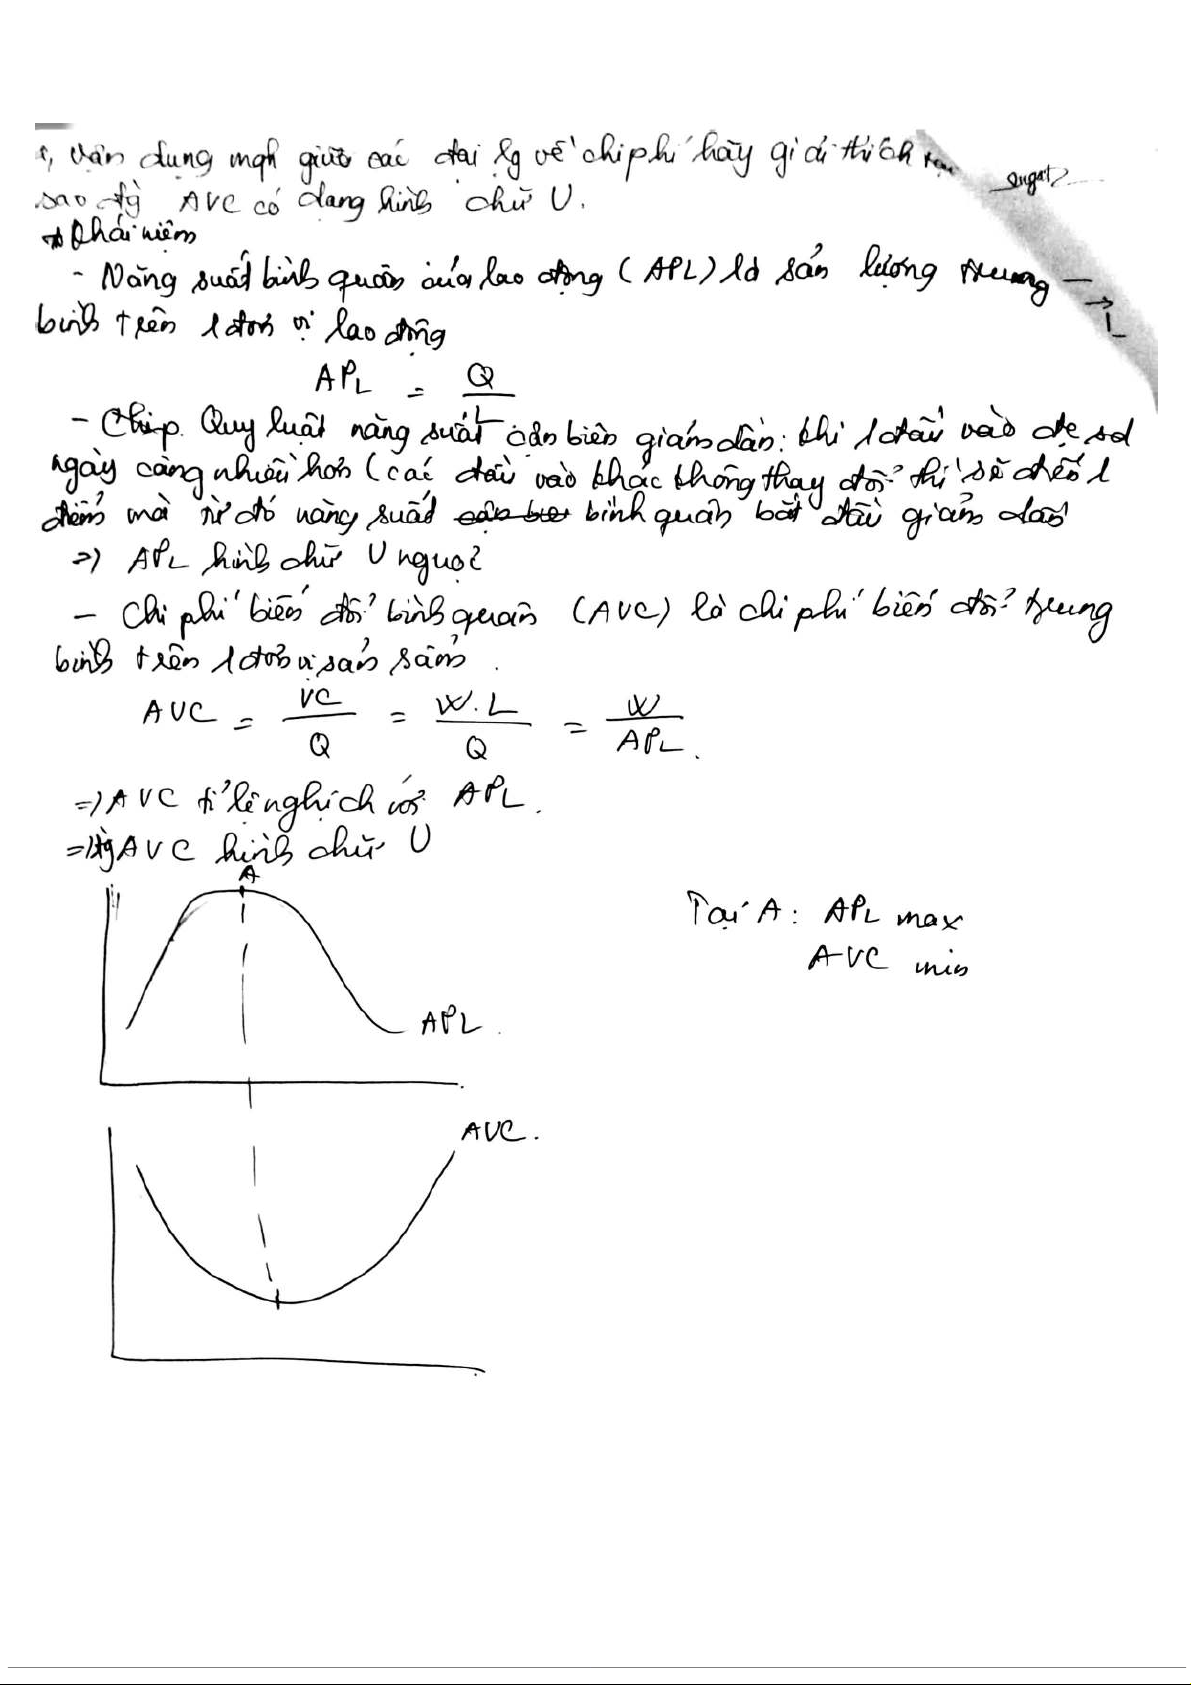 , Vận dụng mqh giữa các đại lg về chi phí hãy giải thích tại
sao đg AVC có dạng hình chữ U.
* Khái niệm
- Năng suất bình quân của lao động (APL) là sản lượng trung
bình trên 1 đơn vị lao động
APL = Q / L
- Chi p. Quy luật năng suất cận biên giảm dần: khi 1 đầu vào đc sd
ngày càng nhiều hơn (các đầu vào khác không thay đổi thì sẽ đến 1
điểm mà từ đó năng suất cận biên bình quân bắt đầu giảm dần
=> APL hình chữ U ngược
- Chi phí biến đổi bình quân (AVC) là chi phí biến đổi trung
bình trên 1 đơn vị sản sẩm.
AVC = VC / Q = W.L / Q = W / APL.
=> AVC tỉ lệ nghịch với APL.
=> đg AVC hình chữ U
A
Tại A: APL max
AVC min
APL
AVC.
L